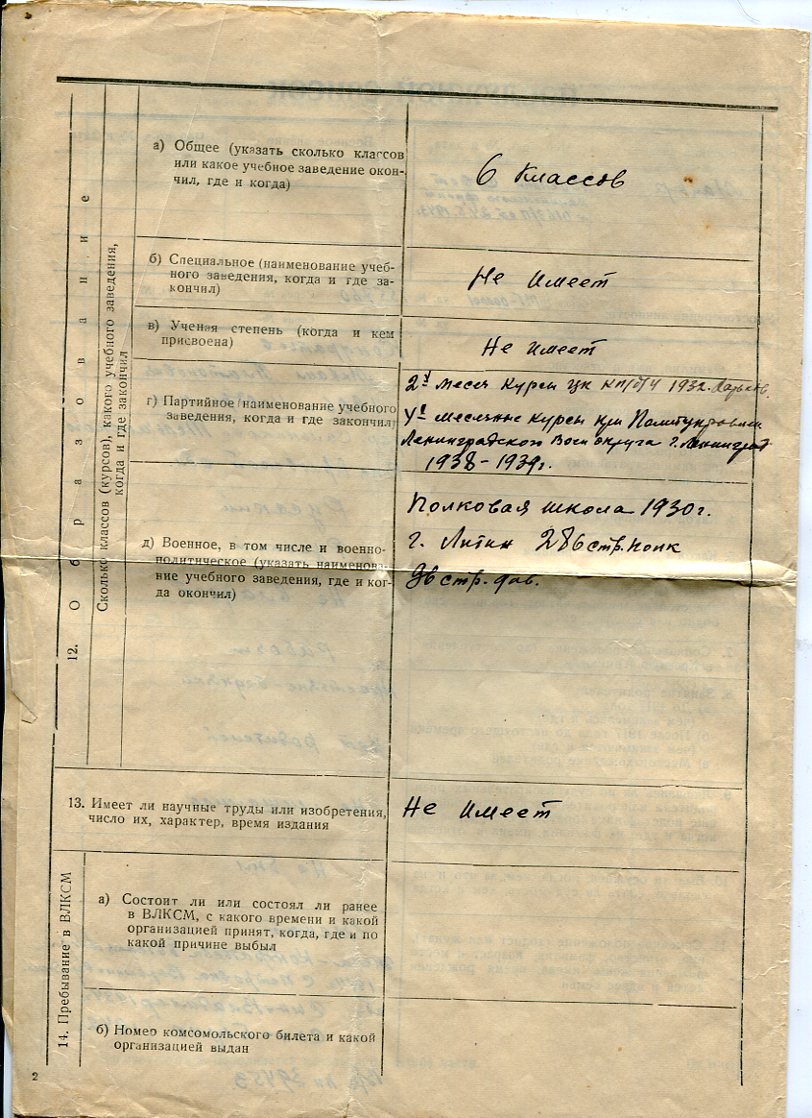 12. Образование
Сколько классов (курсов), какого учебного заведения,
когда и где закончил
а) Общее (указать сколько классов
или какое учебное заведение окон-
чил, где и когда)
6 классов
б) Специальное (наименование учеб-
ного заведения, когда и где за-
кончил)
Не имеет
в) Ученая степень (когда и кем
присвоена)
Не имеет
г) Партийное (наименование учебного
заведения, когда и где закончил)
2х месяч курсы ЦК 1932 г. Харьков.
4х месячные курсы при Политуправлении
Ленинградского Воен округа г. Ленинград
1938-1939г.
д) Военное, в том числе и военно-
политическое (указать наименова-
ние учебного заведения, где и ког-
да окончил)
Полковая школа 1930г.
г. Литин 286 стр. полк
96 стр. див.
13. Имеет ли научные труды или изобретения,
число их, характер, время издания
Не имеет
14. Пребывание в ВЛКСМ
а) Состоит ли или состоял ли ранее
в ВЛКСМ, с какого времени и какой
организацией принят, когда, где и по
какой причине выбыл
б) Номер комсомольского билета и какой
организацией выдан
2